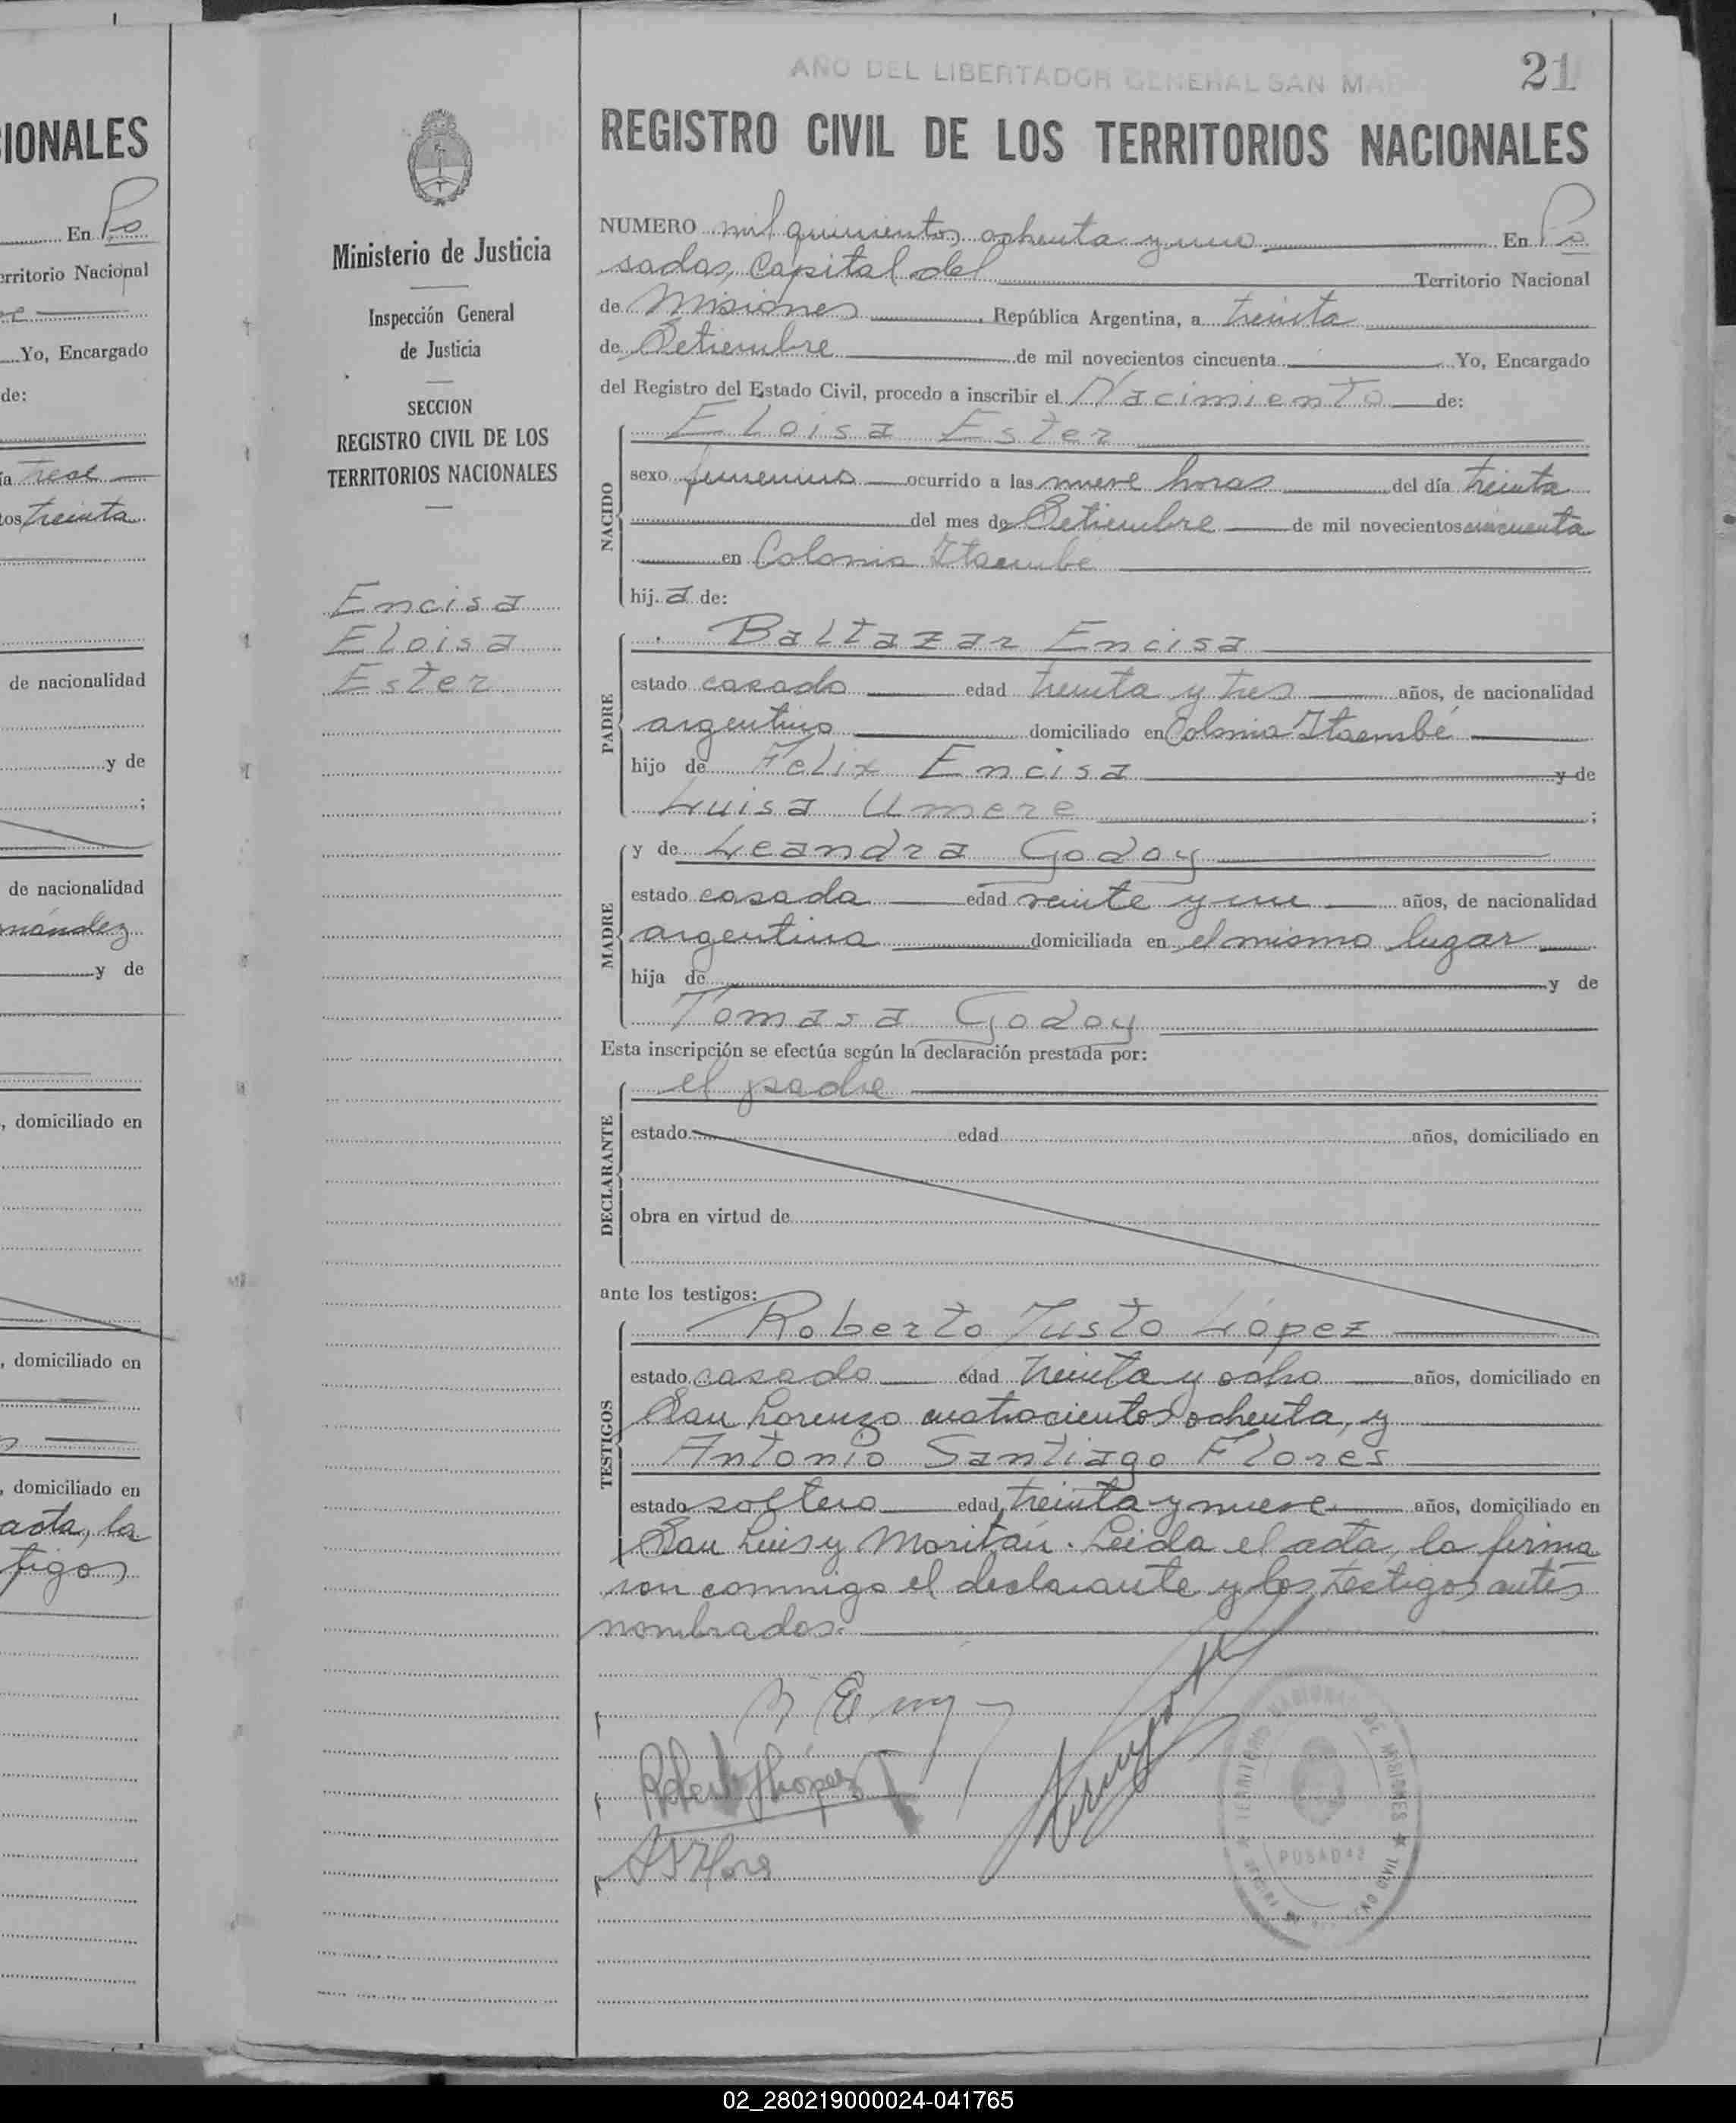 IONALES
En Po
erritorio Nacional
Yo, Encargado
de:
ía trece
tos treinta
de nacionalidad
y de
;
de nacionalidad
rnández
y de
, domiciliado en
, domiciliado en
, domiciliado en
acta, la
tigos
Ministerio de Justicia
Inspección General
de Justicia
SECCION
REGISTRO CIVIL DE LOS
TERRITORIOS NACIONALES
Encisa
Eloisa
Ester
AÑO DEL LIBERTADOR GENERAL SAN MAR
21
REGISTRO CIVIL DE LOS TERRITORIOS NACIONALES
NUMERO mil quinientos ochenta y uno En Po
sadas, Capital del Territorio Nacional
de Misiones, República Argentina, a treinta
de Setiembre de mil novecientos cincuenta Yo, Encargado
del Registro del Estado Civil, procedo a inscribir el Nacimiento de:
NACIDO
Eloisa Ester
sexo femenino ocurrido a las nueve horas del día treinta
del mes de Setiembre de mil novecientos cincuenta
en Colonia Itaembé
hij a de:
PADRE
Baltazar Encisa
estado casado edad treinta y tres años, de nacionalidad
argentino domiciliado en Colonia Itaembé
hijo de Felix Encisa y de
Luisa Umere ;
MADRE
y de Leandra Godoy
estado casada edad veinte y un años, de nacionalidad
argentina domiciliada en el mismo lugar
hija de y de
Tomasa Godoy
Esta inscripción se efectúa según la declaración prestada por:
DECLARANTE
el padre
estado edad años, domiciliado en
obra en virtud de
ante los testigos:
TESTIGOS
Roberto Justo López
estado casado edad treinta y ocho años, domiciliado en
San Lorenzo cuatrocientos ochenta, y
Antonio Santiago Flores
estado soltero edad treinta y nueve años, domiciliado en
San Luis y Moritán. Leida el acta, la firma
ron conmigo el declarante y los testigos antes
nombrados.
Robert J López
A S Flores
TERRITORIO NACIONAL DE MISIONES
POSADAS
02_280219000024-041765